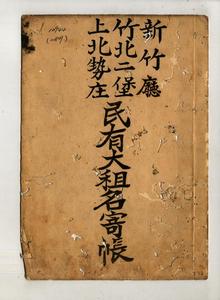 新竹廳
竹北二堡
上北勢庄
民有大租名寄帳